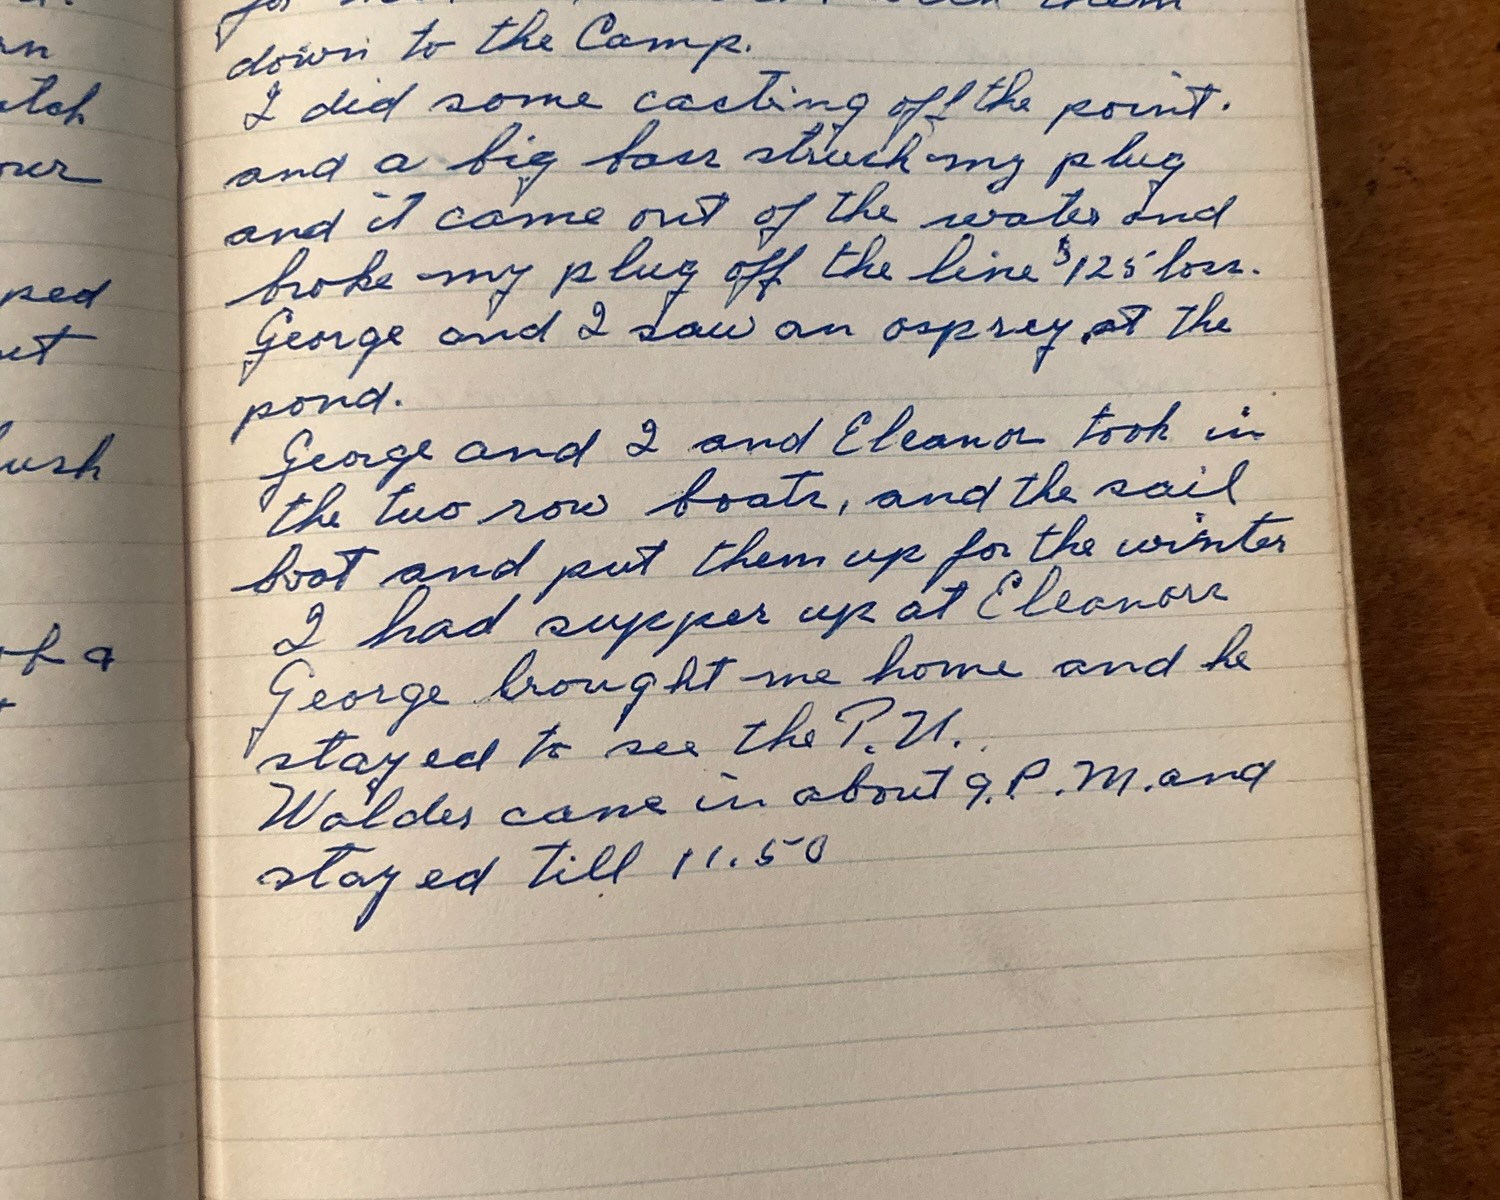 down to the Camp.
I did some casting off the point.
and a big bass struck my plug
and it came out of the water and
broke my plug off the line $125 loss.
George and I saw an osprey at the
pond.
George and I and Eleanor took in
the two row boats, and the sail
boat and put them up for the winter
I had supper up at Eleanors
George brought me home and he
stayed to see the T.V.
Walder came in about 9.P.M. and
stayed till 11.50